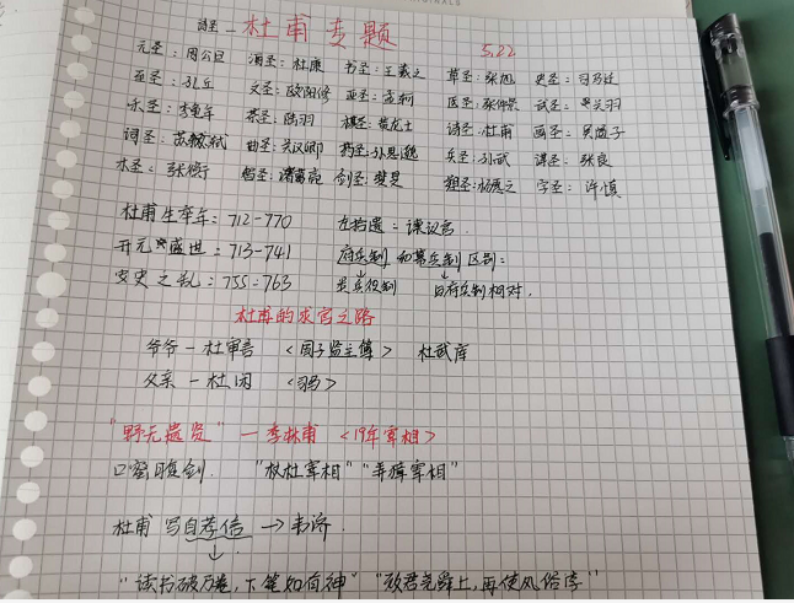 诗圣 — 杜甫专题
5.22
元圣：周公旦 酒圣：杜康 书圣：王羲之 草圣：张旭 史圣：司马迁
至圣：孔丘 文圣：欧阳修 亚圣：孟轲 医圣：张仲景 武圣：关羽
乐圣：李龟年 茶圣：陆羽 棋圣：黄龙士 诗圣：杜甫 画圣：吴道子
词圣：苏轼 曲圣：关汉卿 药圣：孙思邈 兵圣：孙武 谋圣：张良
木圣：张衡 智圣：诸葛亮 剑圣：裴旻 塑圣：杨惠之 字圣：许慎
杜甫生卒年：712-770 左拾遗：谏议官.
开元盛世：713-741 府兵制 和募兵制 区别：
安史之乱：755-763 兵役制 与府兵制相对.
杜甫的求官之路
爷爷 — 杜审言 <国子监主簿> 杜武库
父亲 — 杜闲
"野无遗贤" — 李林甫 <19年宰相>
口蜜腹剑. "杖杜宰相" "弄獐宰相"
杜甫 写自荐信 → 韦济.
↓
"读书破万卷,下笔如有神" "致君尧舜上,再使风俗淳"